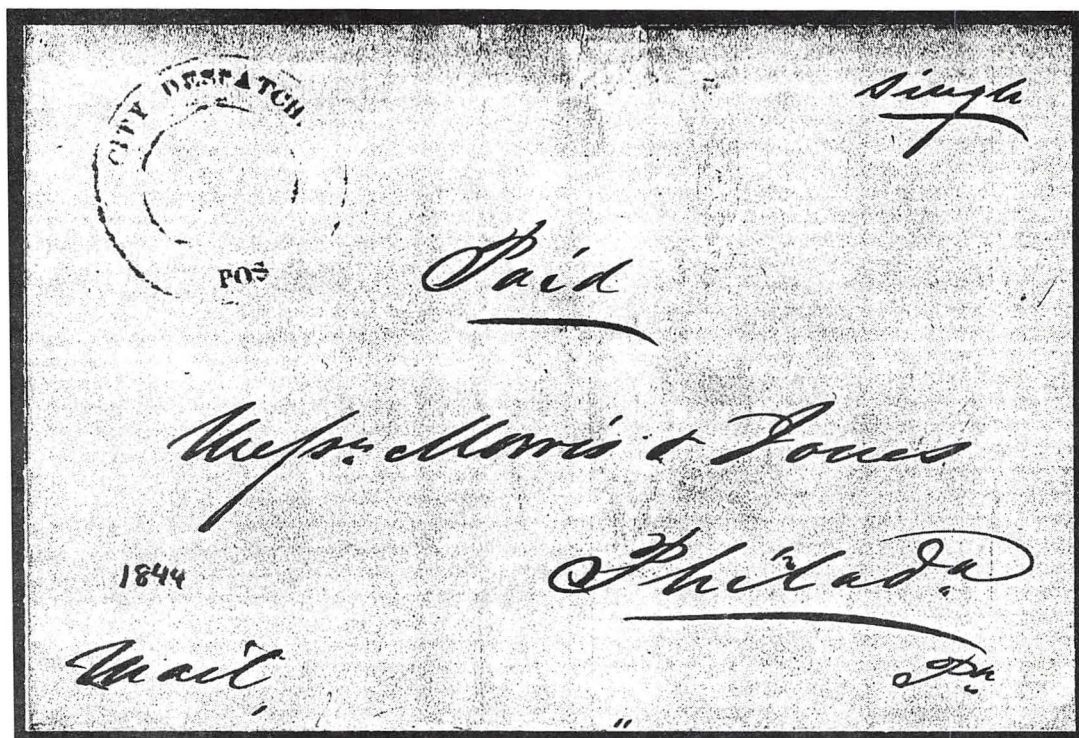 CITY DESPATCH
POS
single
Paid
Messrs. Morris & Jones
Philada.
1844
Mail,
Pa